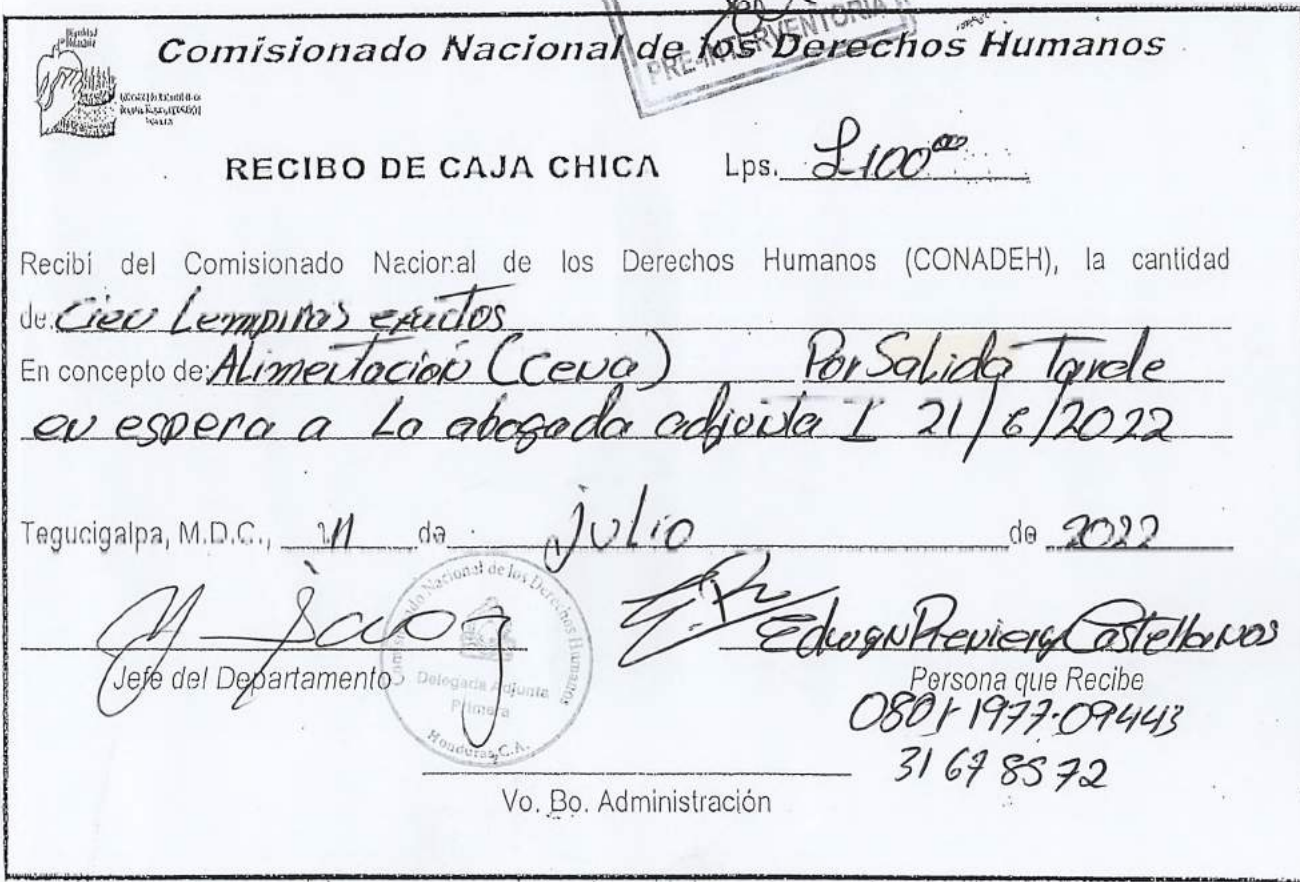 Comisionado Nacional de los Derechos Humanos
PRE-INTERVENTORIA
RECIBO DE CAJA CHICA Lps. L100.00
Recibí del Comisionado Nacional de los Derechos Humanos (CONADEH), la cantidad
de: Cien Lempiras exactos
En concepto de: Alimentación (Cena) Por Salida Tarde
en espera a La abogada adjunta I 21/6/2022
Tegucigalpa, M.D.C., de Julio de 2022
Jefe del Departamento
Comisionado Nacional de los Derechos Humanos
Delegada Adjunta
Primera
Honduras, C.A.
Castellanos
Persona que Recibe
0801 1977-09443
31678572
Vo. Bo. Administración